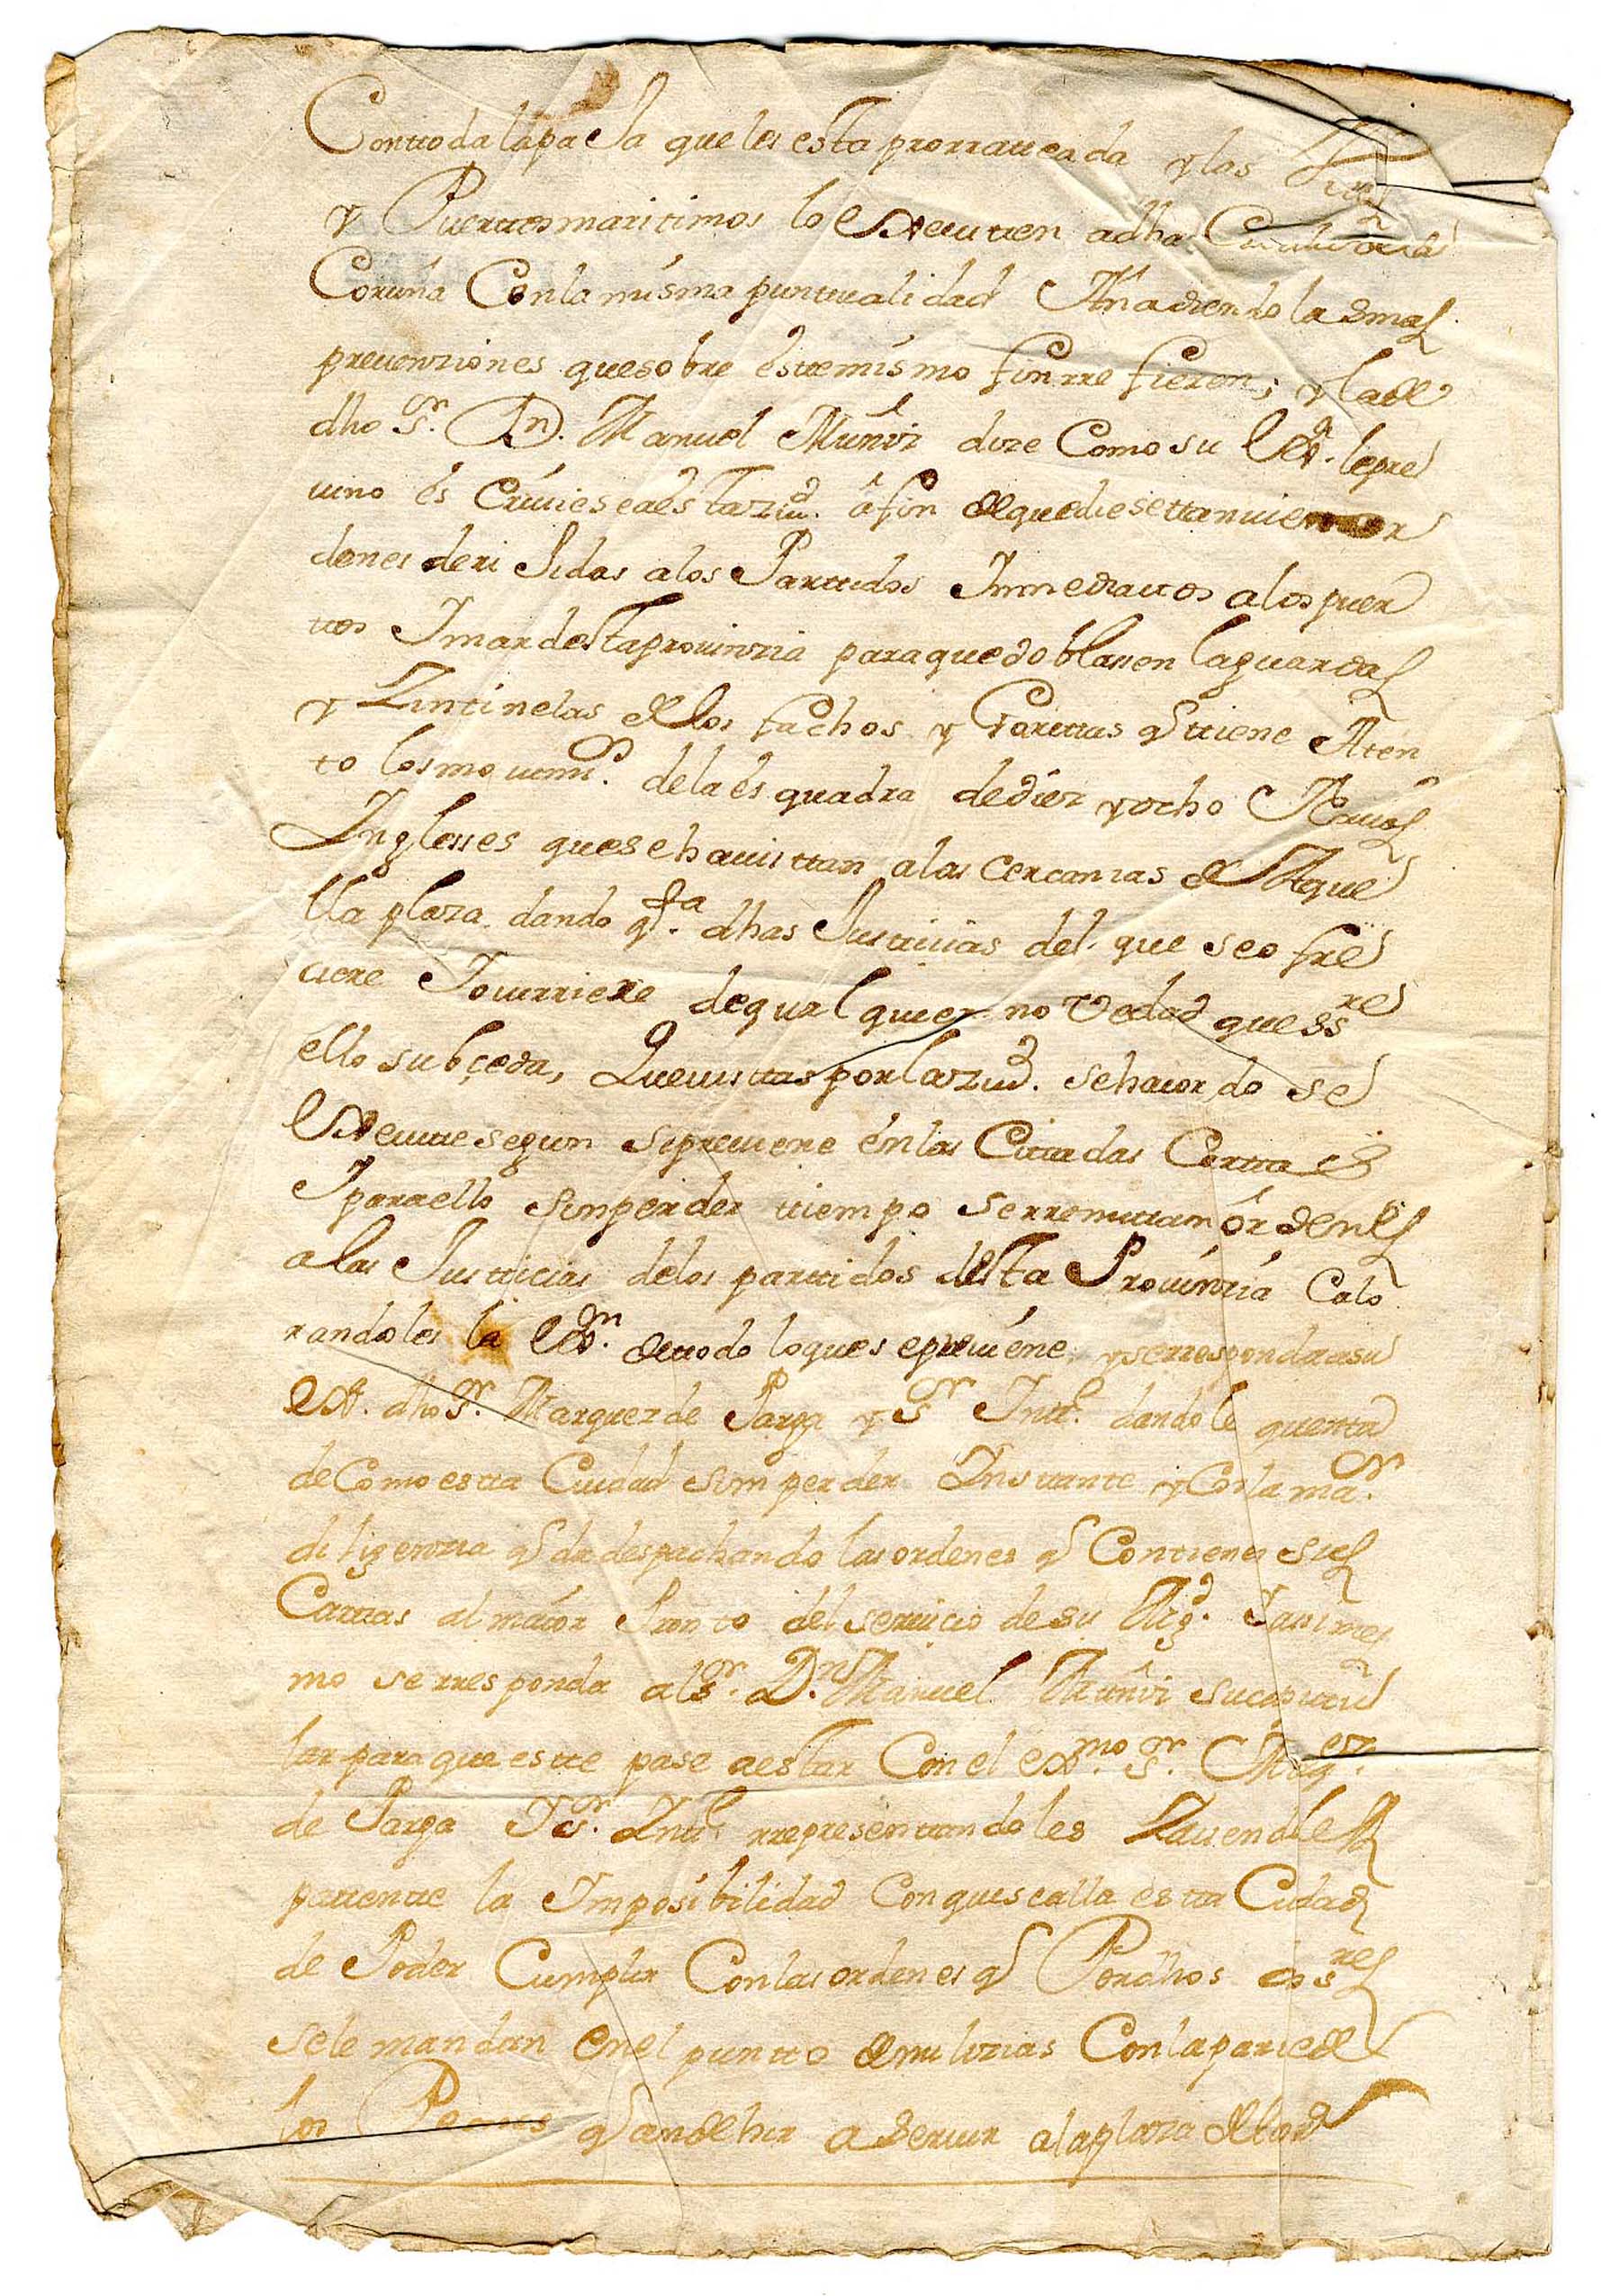 Conttoda la paja que les esta prorratteada y las
y Puerttos maritimos lo executten a dha Ciudad de la
Coruña Con la mísma punttualidad Añadiendo las demas
preuenziones que sobre éstte mísmo fin rrefieren; y la de
dho Sr. Dn. Manuel Muñiz dize Como su Exa. le pre
uino éscriuiese a esta ziud. â fin de que diese ttanuien or
denes derijidas a los Parttidos Inmediattos a los puer
ttos I mar desta prouinzia para que doblasen las guardas
y Zintinelas de los fachos y Garittas q ttiene Aten
to los mouimos. de la ésquadra de diez y ocho Nauios
Inglesses que se hauisttan a las cercanias de Aque
lla plaza dando qta. dhas Justticias del que se ofre
ciere I ocurriere de qualquier novedad que ssre
ello subçeda, Que uisttas por la ziud. se hacordo se
Executte segun se preuiene én las Cittadas Carttas
I para ello sin perder ttiempo se rremittan órdenes
a las Justticias de los parttidos desta Prouinzia Calo
randoles la Exn. de ttodo lo que se preuiéne, y se rresponda a su
Ex. dho Sr. Marquez de Parga y Sr Intte. dandole quenta
de Como estta Ciudad sin perder Insttante y Con la mar.
diligenzia q da despachando las ordenes q Contienen sus
Carttas al maior Pronto del seruicio de su Magd. I assimes
mo se rresponda al Sr. Dn. Manuel Muñiz su capittu
lar para que estte pase a estar Con el exmo. Sr. Marqez.
de Parga I Sr. Intte rrepresenttandoles
pattentte la Imposibilidad Con que se alla estta Ciudad
de Poder Cumplir Con las ordenes q Por dhos ssres
se le mandan en el puntto de milizias Con la parte de
los Peones q an de hir a seruir a la plaza de la